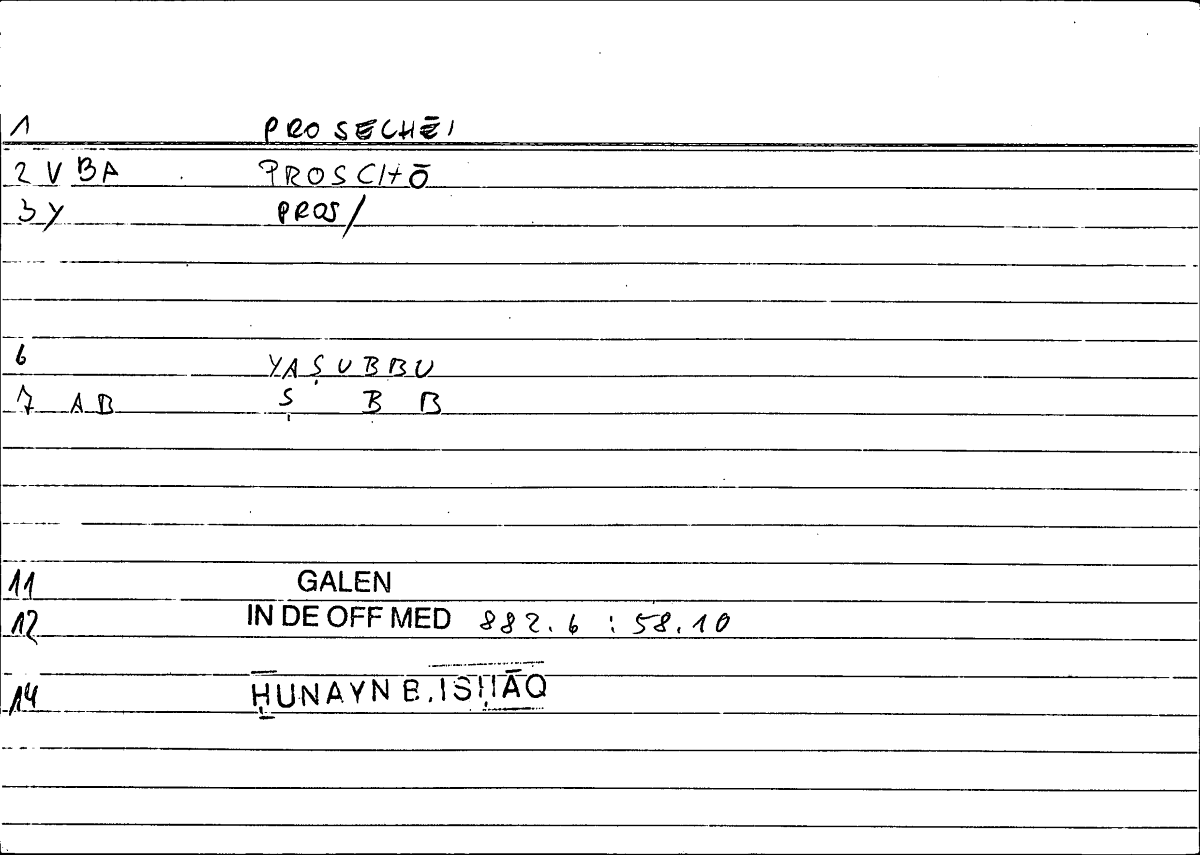 1 PROSECHĒI
2 VBA PROSCHŌ
3Y PROS/
6 YAṢUBBU
7 AB Ṣ B B
11 GALEN
12 IN DE OFF MED 882.6 : 58.10
14 ḤUNAYN B. ISḤĀQ